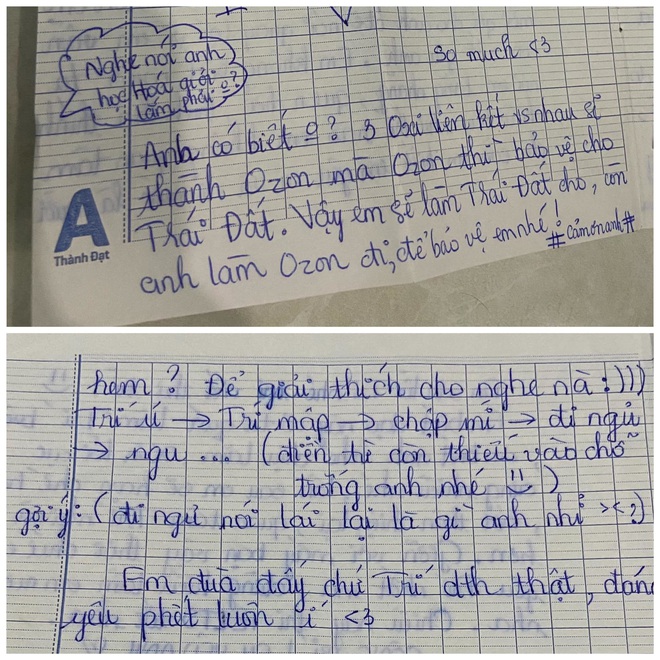 Nghe nói anh
học Hoá giỏi
lắm phải o?
So much <3
Anh có biết o? 3 Oxi liên kết vs nhau sẽ
thành Ozon mà Ozon thì bảo vệ cho
Trái Đất. Vậy em sẽ làm Trái Đất cho, còn
anh làm Ozon đi, để bảo vệ em nhé!
#cảmơnanh#
A
Thành Đạt
hem? Để giải thích cho nghe nà:)))
Trí ú → Trí mập → chập mí → đi ngủ
→ ngu ... (điền từ còn thiếu vào chỗ
trống anh nhé)
gợi ý: (đi ngủ nói lái lại là gì anh nhỉ ><?)
Em đùa đấy chứ Trí dth thật, đáng
yêu phết luôn í <3